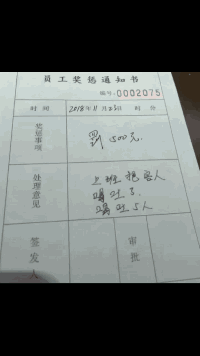 员工奖惩通知书
编号：0002075
时间 2018年11月23日 时 分
奖惩事项 罚500元.
处理意见 上班把客人
喝吐了
喝吐5人
签发人
审批